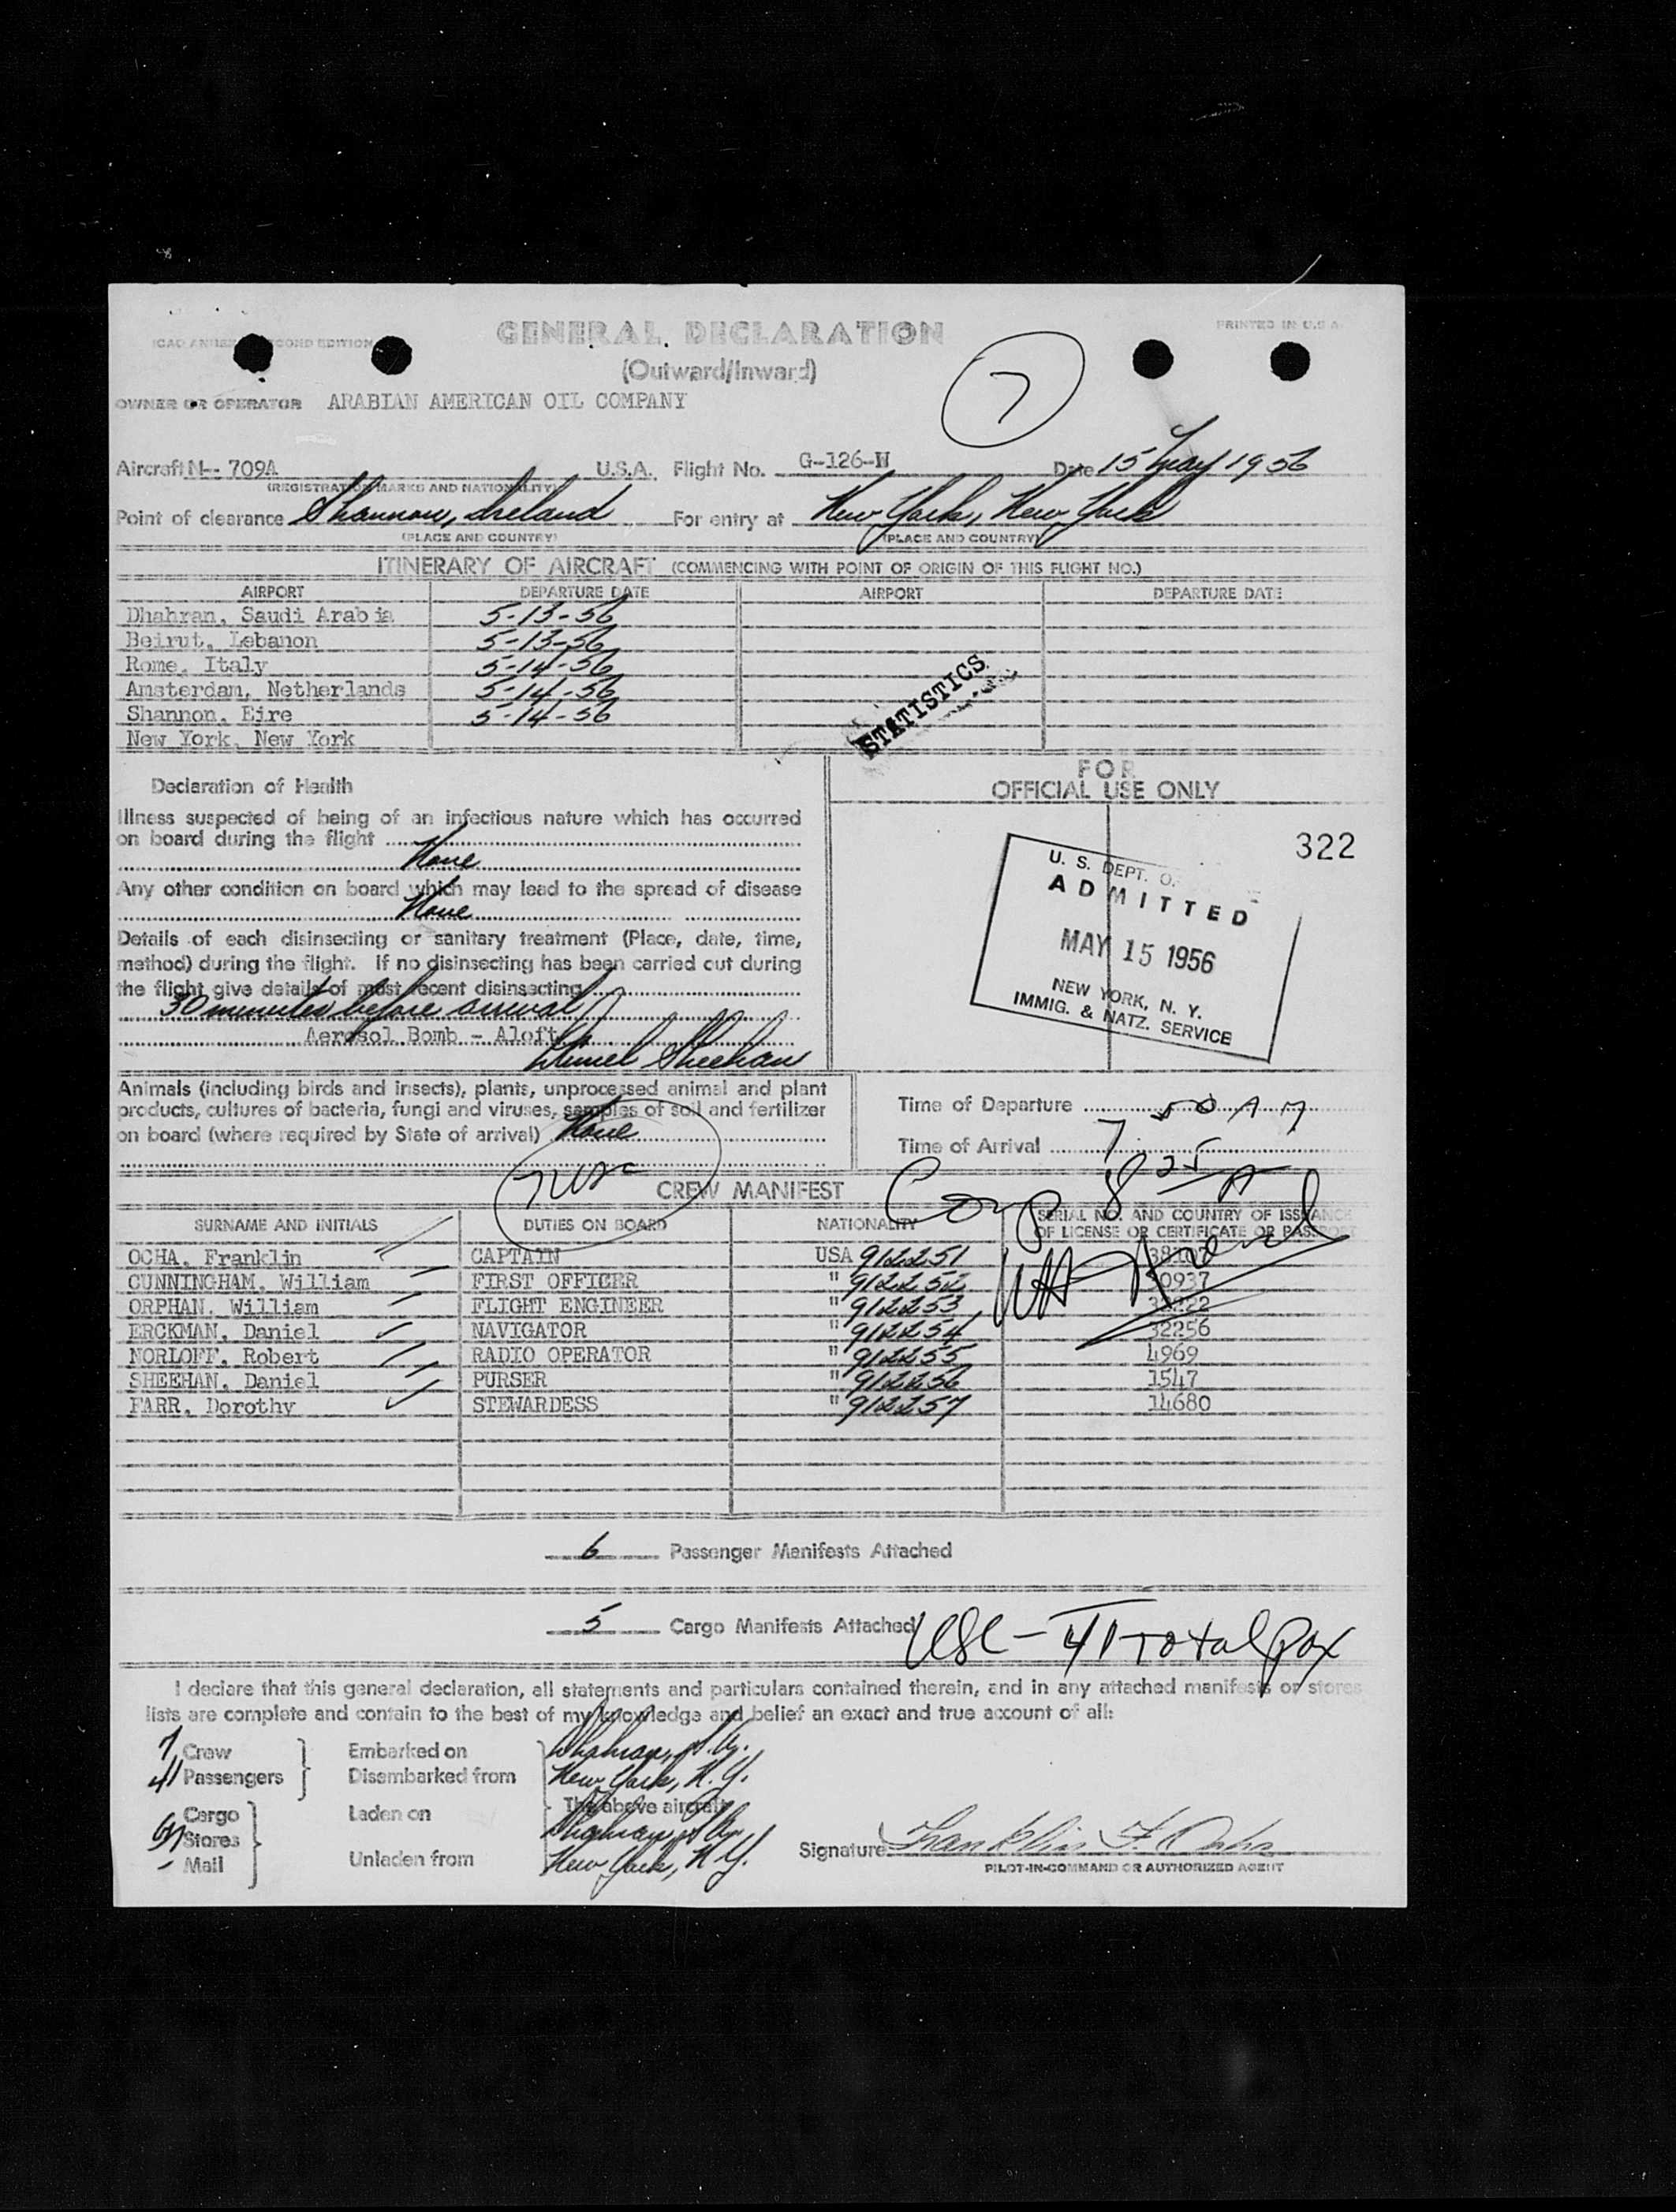 GENERAL DECLARATION
PRINTED IN U.S.A.
ICAO ANNEX SECOND EDITION
(Outward/Inward)
7
OWNER OR OPERATOR ARABIAN AMERICAN OIL COMPANY
Aircraft N-- 709A U.S.A. Flight No. G-126-W Date 15 May 1956
(REGISTRATION MARKS AND NATIONALITY)
Point of clearance Shannon, Ireland For entry at New York, New York
(PLACE AND COUNTRY) (PLACE AND COUNTRY)
ITINERARY OF AIRCRAFT (COMMENCING WITH POINT OF ORIGIN OF THIS FLIGHT NO.)
AIRPORT DEPARTURE DATE AIRPORT DEPARTURE DATE
Dhahran, Saudi Arabia 5-13-56
Beirut, Lebanon 5-13-56
Rome, Italy 5-14-56
Amsterdam, Netherlands 5-14-56
Shannon, Eire 5-14-56
New York, New York
STATISTICS
Declaration of Health
Illness suspected of being of an infectious nature which has occurred
on board during the flight
None
Any other condition on board which may lead to the spread of disease
None
Details of each disinsecting or sanitary treatment (Place, date, time,
method) during the flight. If no disinsecting has been carried out during
the flight give details of most recent disinsecting
30 minutes before arrival
Aerosol Bomb - Aloft
Daniel Sheehan
FOR
OFFICIAL USE ONLY
322
U. S. DEPT. O
ADMITTED
MAY 15 1956
NEW YORK, N. Y.
IMMIG. & NATZ. SERVICE
Animals (including birds and insects), plants, unprocessed animal and plant
products, cultures of bacteria, fungi and viruses, samples of soil and fertilizer
on board (where required by State of arrival) None
Time of Departure
Time of Arrival 7 50 AM
Comp 8 25 A
CREW MANIFEST
SURNAME AND INITIALS DUTIES ON BOARD NATIONALITY SERIAL NO. AND COUNTRY OF ISSUANCE
OF LICENSE OR CERTIFICATE OR PASSPORT
OCHA, Franklin CAPTAIN USA 912251
CUNNINGHAM, William FIRST OFFICER " 912252
ORPHAN, William FLIGHT ENGINEER " 912253
ERCKMAN, Daniel NAVIGATOR " 912254 32256
NORLOFF, Robert RADIO OPERATOR " 912255 4969
SHEEHAN, Daniel PURSER " 912256 1547
FARR, Dorothy STEWARDESS " 912257 14680
6 Passenger Manifests Attached
5 Cargo Manifests Attached
USC - 41 Total Pax
I declare that this general declaration, all statements and particulars contained therein, and in any attached manifests or stores
lists are complete and contain to the best of my knowledge and belief an exact and true account of all:
7 Crew Embarked on Dhahran, S.A.
41 Passengers Disembarked from New York, N.Y.
The above aircraft
Cargo Laden on Dhahran, S.A.
Stores
- Mail Unladen from New York, N.Y.
Signature Franklin F. Ocha
PILOT-IN-COMMAND OR AUTHORIZED AGENT